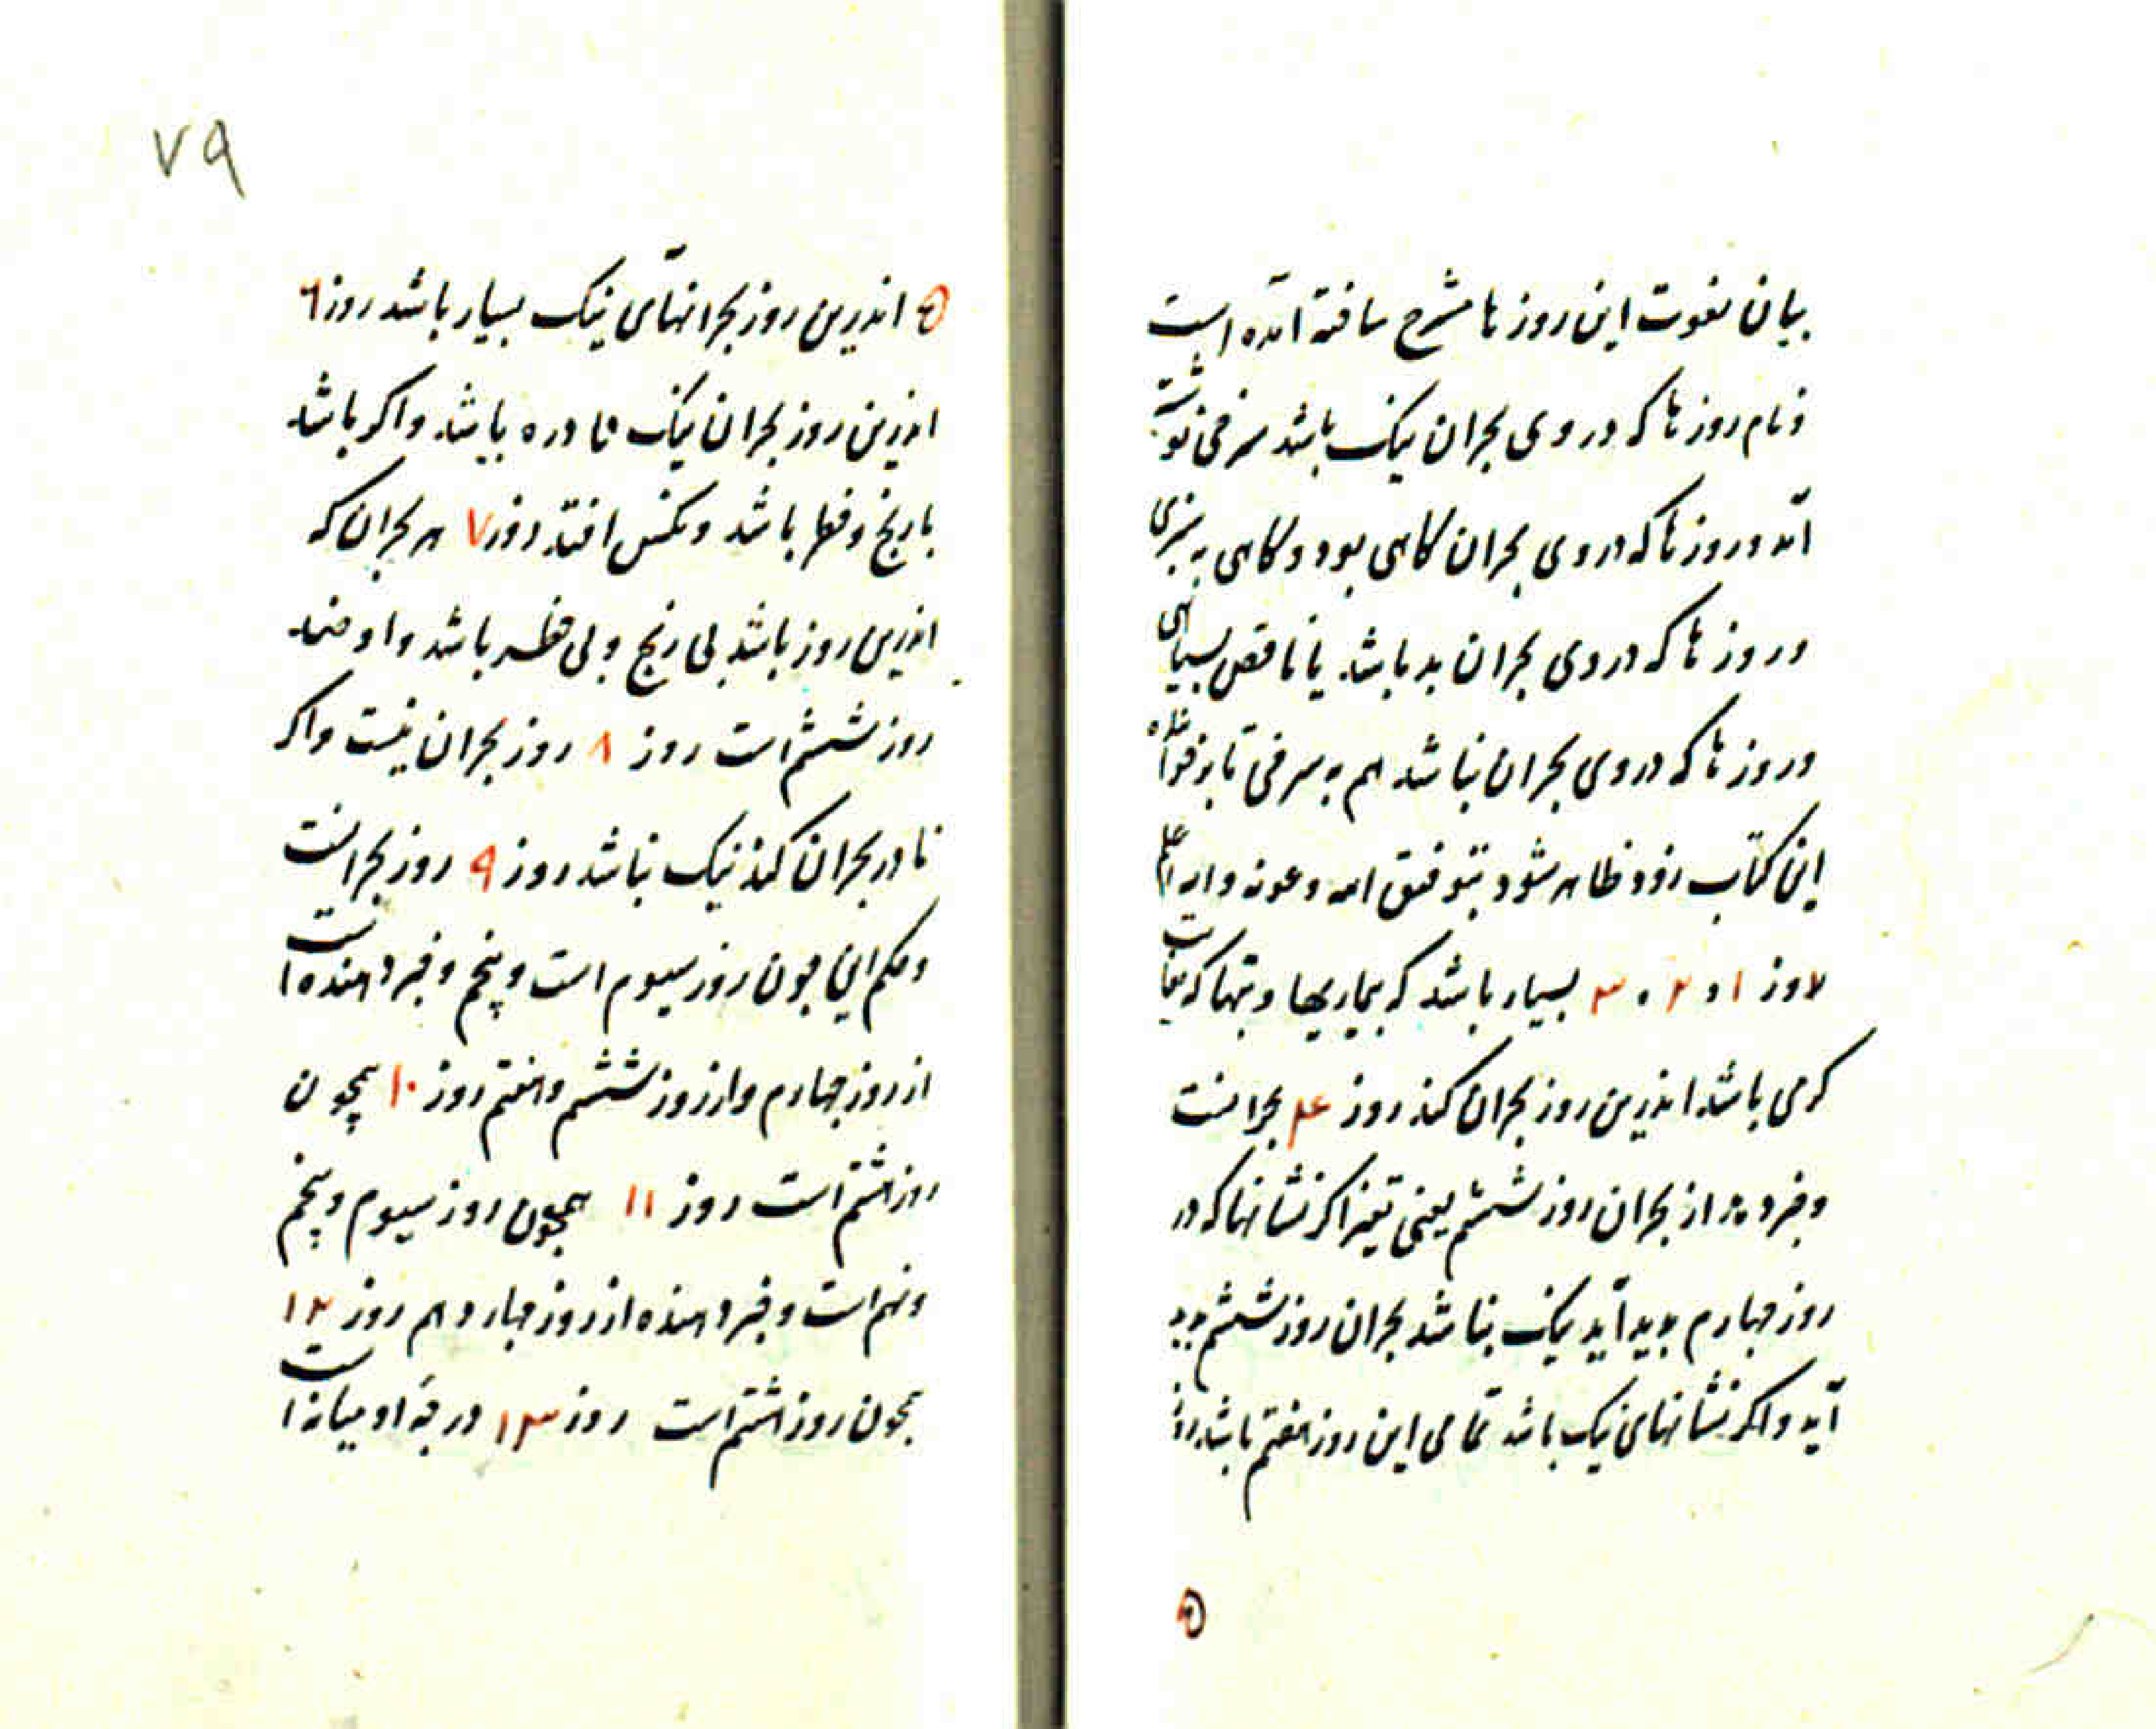 بیان تفوت این روز ها مشرح ساخته آمده است
و نام روز ها که در وی بحران نیک باشد سرخی نوشته
آمد و روز ها که در وی بحران کاهی بود و کاهی به سبزی
و روز ها که در وی بحران بد باشد یا ناقص بسیاهی
و روز ها که در وی بحران نباشد هم به سرخی تا بر خواننده
این کتاب زود ظاهر شود بتوفیق الله وعونه والله اعلم
روز ۱ و ۲ و ۳ بسیار باشد که بیماریها و تبها که بغایت
کرمی باشد اندرین روز بحران کند روز ۴ بحرانست
و خبر دهد از بحران روز ششم یعنی تغیر اکر نشانها که در
روز چهارم بدید آید نیک نباشد بحران روز ششم بدید
آید و اکر نشانهای نیک باشد تمامی این روز هفتم باشد روز
۵
۷۹
۵ اندرین روز بحرانهای نیک بسیار باشد روز ۶
اندرین روز بحران نیک نادره باشد و اکر باشد
با رنج و خطر باشد و نکس افتد روز ۷ هر بحران که
اندرین روز باشد بی رنج و بی خطر باشد و او ضد
روز ششم است روز ۸ روز بحران نیست و اکر
نادر بحران کند نیک نباشد روز ۹ روز بحرانست
و حکم این چون روز سیوم است و پنجم و خبر دهنده است
از روز چهارم و از روز ششم و هفتم روز ۱۰ همچون
روز هشتم است روز ۱۱ همچون روز سیوم و پنجم
و نهم است و خبر دهنده از روز چهاردهم روز ۱۲
همچون روز هشتم است روز ۱۳ درجهٔ او میانه است